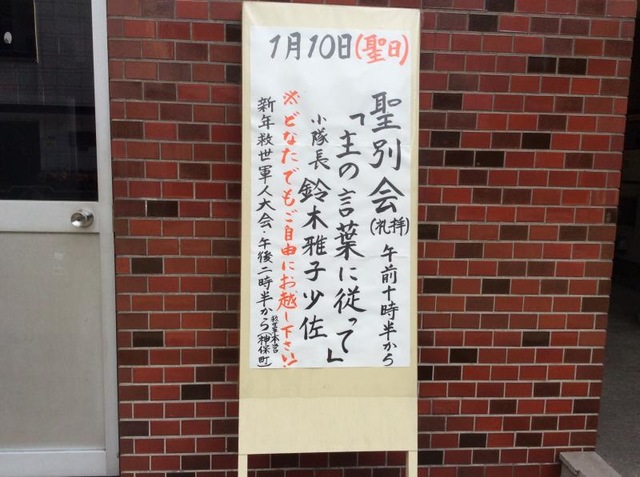 1月10日(聖日)
聖別会(礼拝)午前十時半から
「主の言葉に従って」
小隊長 鈴木雅子少佐
※どなたでもご自由にお越し下さい!
新年救世軍人大会・午後二時半から(救世軍本営 神保町)